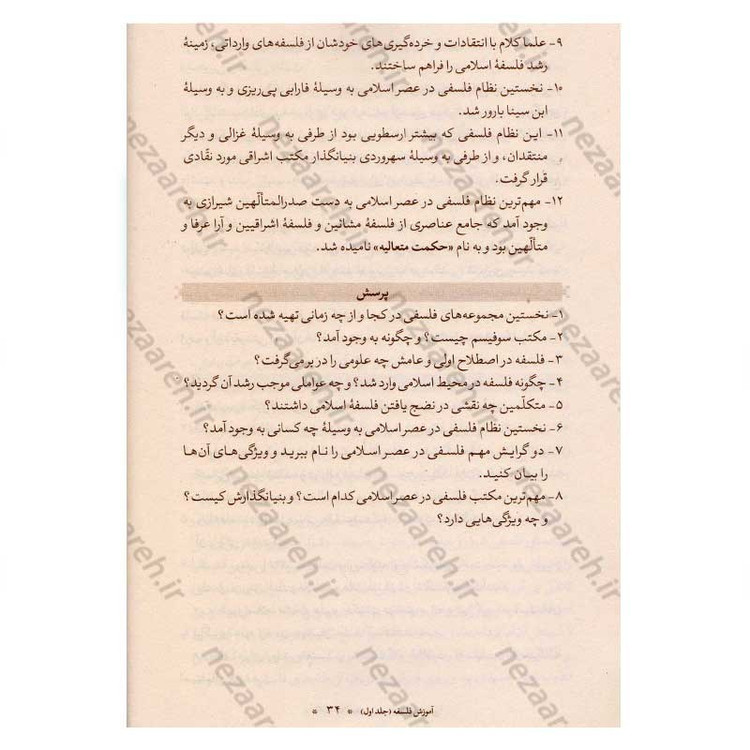 ۹- علما کلام با انتقادات و خرده‌گیری‌های خودشان از فلسفه‌های وارداتی، زمینهٔ
رشد فلسفهٔ اسلامی را فراهم ساختند.
۱۰- نخستین نظام فلسفی در عصر اسلامی به وسیلهٔ فارابی پی‌ریزی و به وسیلهٔ
ابن سینا بارور شد.
۱۱- این نظام فلسفی که بیشتر ارسطویی بود از طرفی به وسیلهٔ غزالی و دیگر
منتقدان، و از طرفی به وسیلهٔ سهروردی بنیانگذار مکتب اشراقی مورد نقّادی
قرار گرفت.
۱۲- مهم‌ترین نظام فلسفی در عصر اسلامی به دست صدرالمتألّهین شیرازی به
وجود آمد که جامع عناصری از فلسفهٔ مشائین و فلسفهٔ اشراقیین و آرا عرفا و
متألّهین بود و به نام «حکمت متعالیه» نامیده شد.
پرسش
۱- نخستین مجموعه‌های فلسفی در کجا و از چه زمانی تهیه شده است؟
۲- مکتب سوفیسم چیست؟ و چگونه به وجود آمد؟
۳- فلسفه در اصطلاح اولی و عامش چه علومی را در برمی‌گرفت؟
۴- چگونه فلسفه در محیط اسلامی وارد شد؟ و چه عواملی موجب رشد آن گردید؟
۵- متکلّمین چه نقشی در نضج یافتن فلسفهٔ اسلامی داشتند؟
۶- نخستین نظام فلسفی در عصر اسلامی به وسیلهٔ چه کسانی به وجود آمد؟
۷- دو گرایش مهم فلسفی در عصر اسلامی را نام ببرید و ویژگی‌های آن‌ها
را بیان کنید.
۸- مهم‌ترین مکتب فلسفی در عصر اسلامی کدام است؟ و بنیانگذارش کیست؟
و چه ویژگی‌هایی دارد؟
آموزش فلسفه (جلد اول) * ۳۴ *
nezaareh.ir
nezaareh.ir
nezaareh.ir
nezaareh.ir
nezaareh.ir
nezaareh.ir
nezaareh.ir
nezaareh.ir